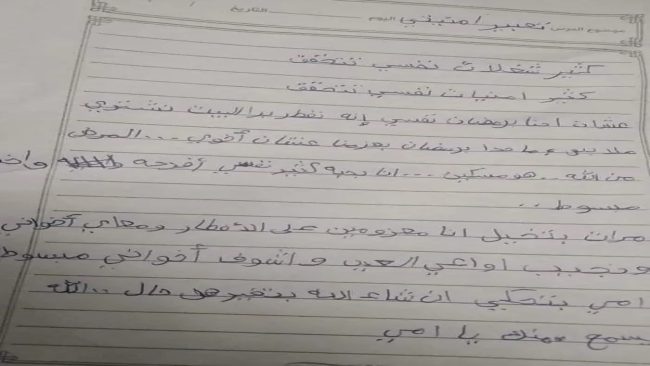 موضوع الدرس تعبير / امنيتي اليوم التاريخ
كثير شغلات نفسي تتحقق
كثير امنيات نفسي تتحقق
عشان احنا برمضان نفسي إنه نفطر برا البيت نشتوي
ملا بس ما حدا برمضان بعزمنا عشان أخوي ... المرض
من الله .. هو مسكين ... انا بحبه كثير نفسي أفرحه واخد
مبسوط ..
مرات بتخيل انا معزومين على الافطار ومعاي أخواني
ونجيب اواعي العيد واشوف أخواني مبسوط
امي بتحكيلي ان شاء الله بتغير هال حال .. الله
يسمع منك يا امي